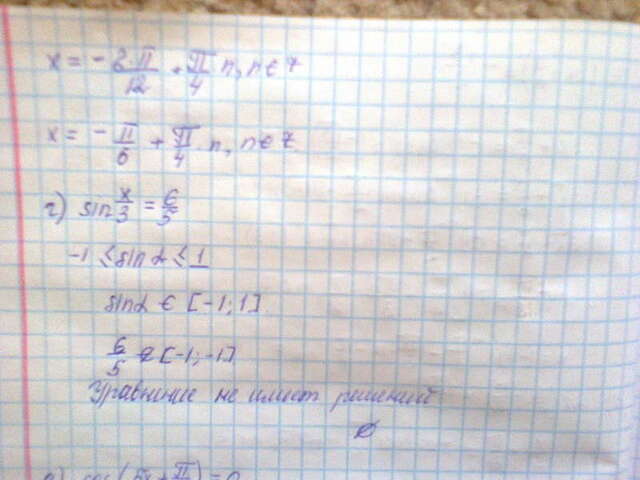 x = - 2π/12 + π/4 n, n ∈ Z
x = - π/6 + π/4 n, n ∈ Z
г) sin x/3 = 6/5
-1 ≤ sin α ≤ 1
sin α ∈ [-1; 1]
6/5 ∉ [-1; -1]
Уравнение не имеет решений
∅
cos(5x + π
) = 0